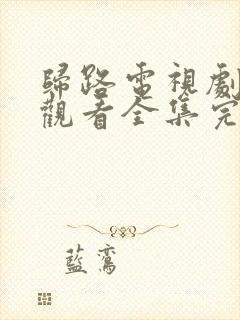 歸路電視劇
觀看全集完
藍鸞